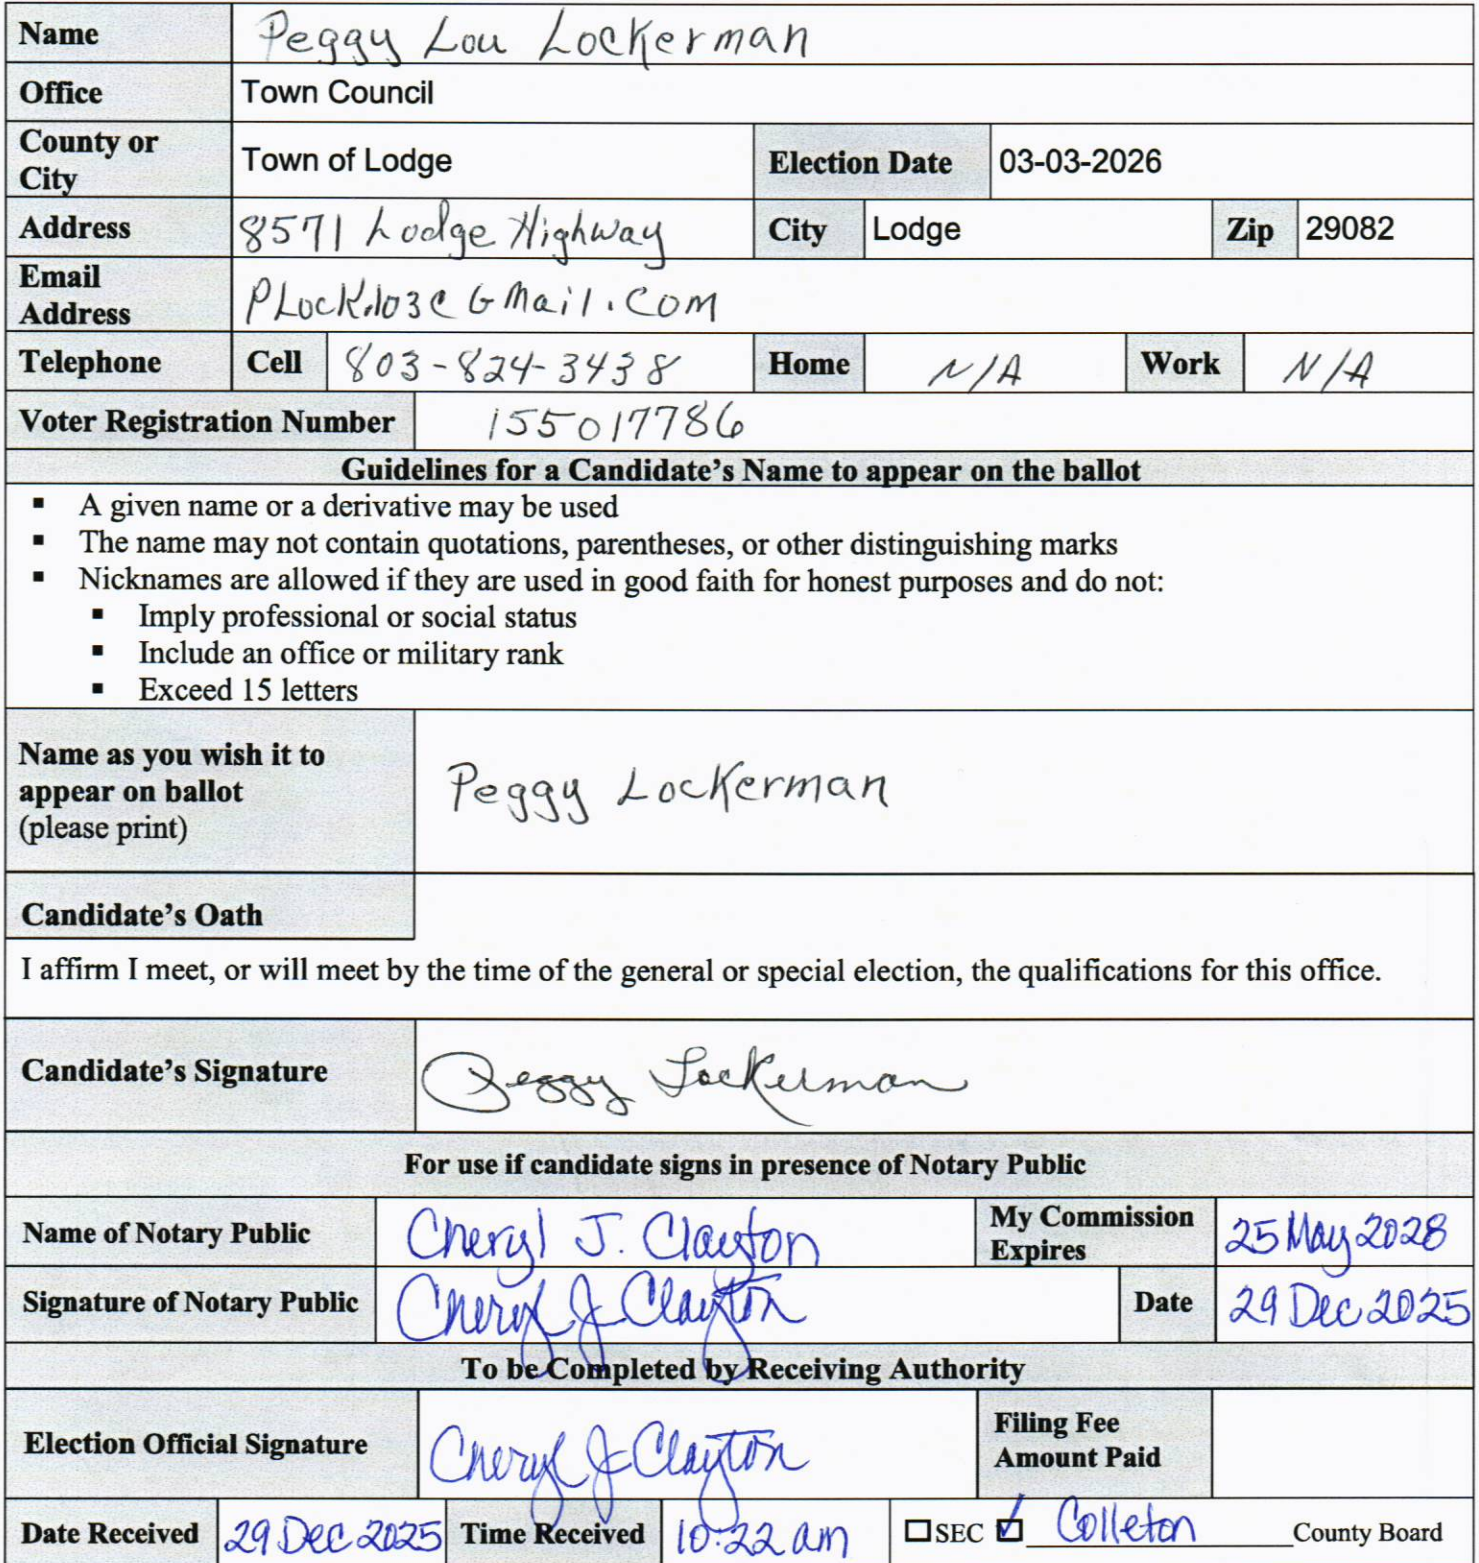 Name Peggy Lou Lockerman
Office Town Council
County or City Town of Lodge Election Date 03-03-2026
Address 8571 Lodge Highway City Lodge Zip 29082
Email Address
Telephone Cell 803-824-3438 Home N/A Work N/A
Voter Registration Number 155017786
Guidelines for a Candidate's Name to appear on the ballot
▪ A given name or a derivative may be used
▪ The name may not contain quotations, parentheses, or other distinguishing marks
▪ Nicknames are allowed if they are used in good faith for honest purposes and do not:
▪ Imply professional or social status
▪ Include an office or military rank
▪ Exceed 15 letters
Name as you wish it to
appear on ballot
(please print)
Peggy Lockerman
Candidate's Oath
I affirm I meet, or will meet by the time of the general or special election, the qualifications for this office.
Candidate's Signature Peggy Lockerman
For use if candidate signs in presence of Notary Public
Name of Notary Public Cheryl J. Clayton My Commission Expires 25 May 2028
Signature of Notary Public Cheryl J Clayton Date 29 Dec 2025
To be Completed by Receiving Authority
Election Official Signature Cheryl J Clayton Filing Fee Amount Paid
Date Received 29 Dec 2025 Time Received 10:22 am ☐ SEC ☑ Colleton County Board